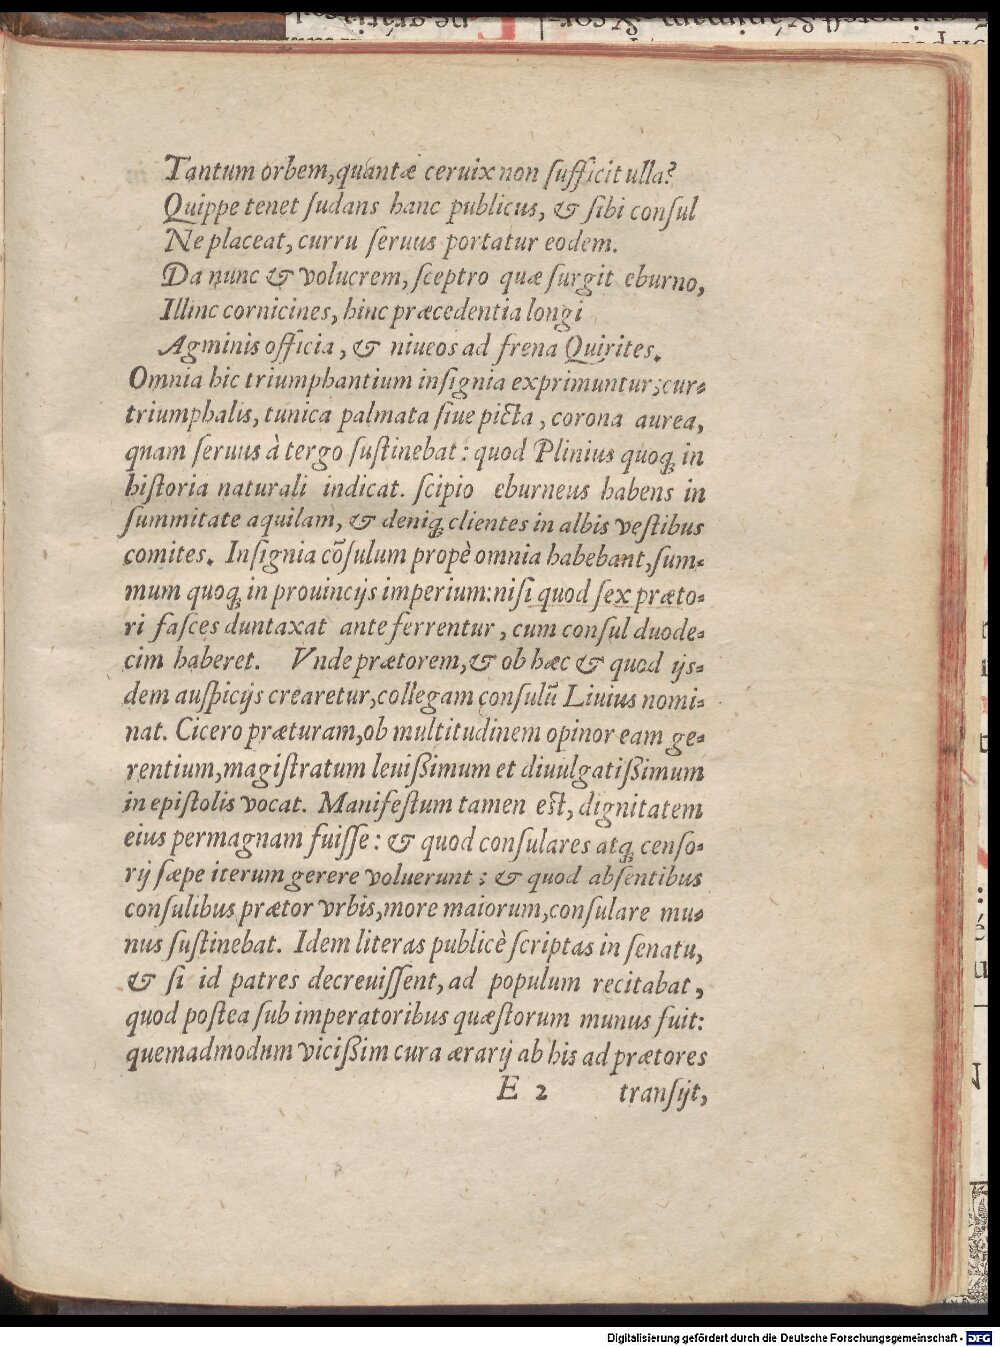 Tantum orbem, quantæ ceruix non ſufficit ulla?
Quippe tenet ſudans hanc publicus, & ſibi conſul
Ne placeat, curru ſeruus portatur eodem.
Da nunc & volucrem, ſceptro quæ ſurgit eburno,
Illinc cornicines, hinc præcedentia longi
Agminis officia, & niueos ad frena Quirites.
Omnia hic triumphantium inſignia exprimuntur; cur-
triumphalis, tunica palmata ſiue picta, corona aurea,
quam ſeruus à tergo ſuſtinebat: quod Plinius quoq; in
hiſtoria naturali indicat. ſcipio eburneus habens in
ſummitate aquilam, & deniq; clientes in albis veſtibus
comites. Inſignia cõſulum propè omnia habebant, ſum-
mum quoq; in prouincijs imperium: niſi quod ſex præto-
ri faſces duntaxat ante ferrentur, cum conſul duode-
cim haberet. Vnde prætorem, & ob hæc & quod ijs-
dem auſpicijs crearetur, collegam conſulũ Liuius nomi-
nat. Cicero præturam, ob multitudinem opinor eam ge-
rentium, magiſtratum leuißimum et diuulgatißimum
in epiſtolis vocat. Manifeſtum tamen eſt, dignitatem
eius permagnam fuiſſe: & quod conſulares atq; cenſo-
rij ſæpe iterum gerere voluerunt; & quod abſentibus
conſulibus prætor vrbis, more maiorum, conſulare mu-
nus ſuſtinebat. Idem literas publicè ſcriptas in ſenatu,
& ſi id patres decreuiſſent, ad populum recitabat,
quod poſtea ſub imperatoribus quæſtorum munus fuit:
quemadmodum vicißim cura ærarij ab his ad prætores
E 2 tranſijt,
Digitalisierung gefördert durch die Deutsche Forschungsgemeinschaft - DFG